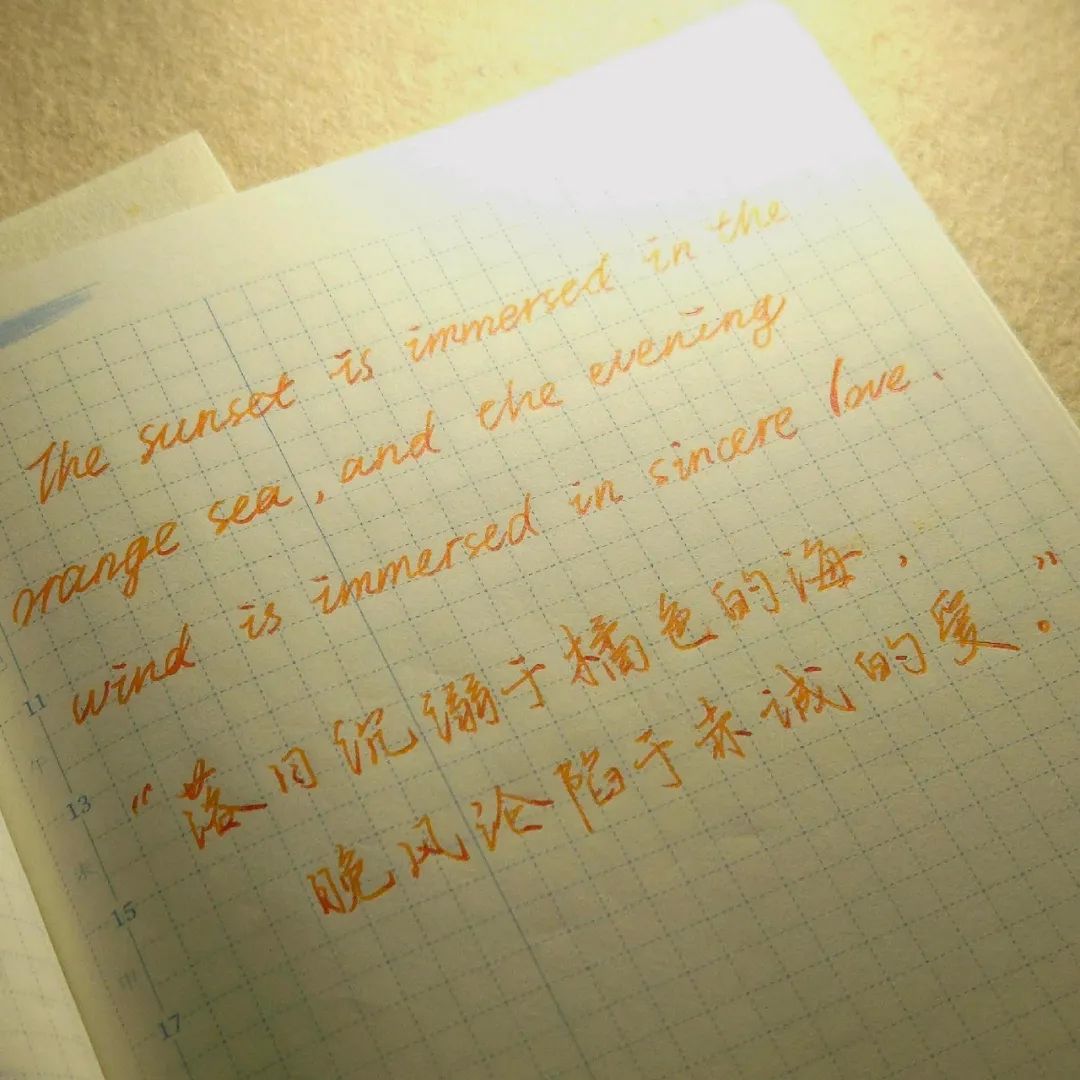 The sunset is immersed in the
orange sea, and the evening
wind is immersed in sincere love.
“落日沉溺于橘色的海，
晚风沦陷于赤诚的爱。”
11
午
13
未
15
申
17